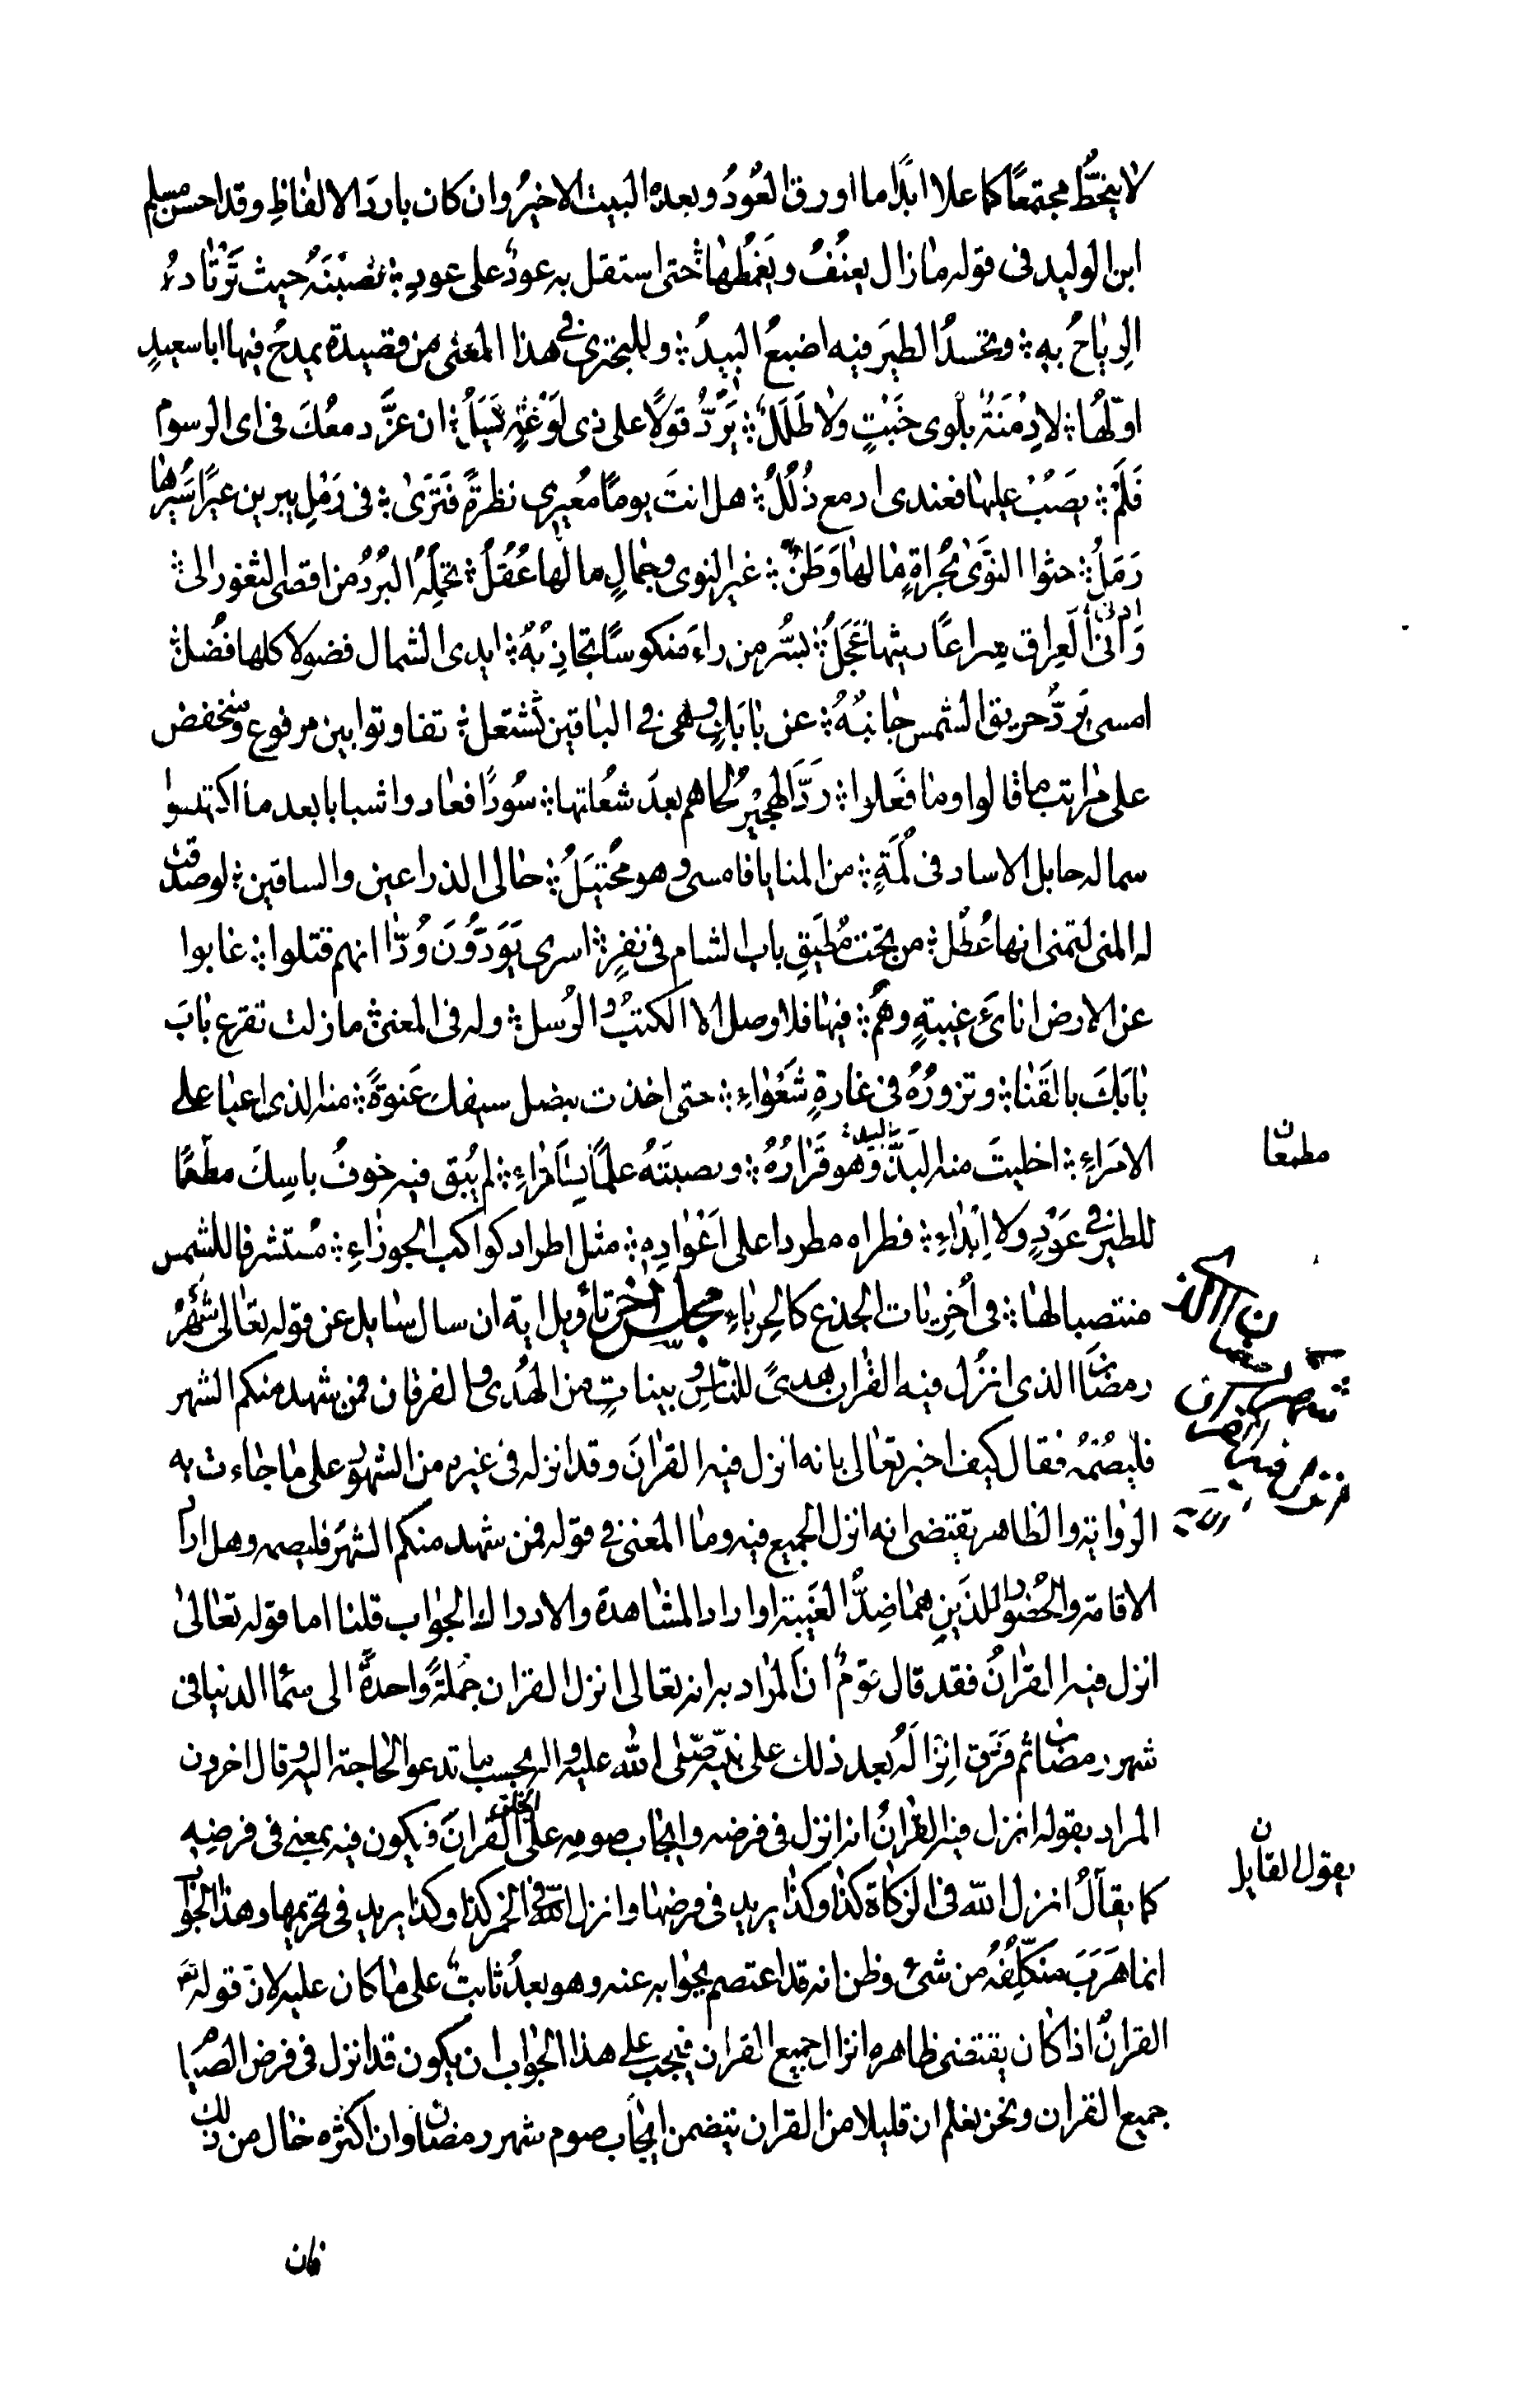 لا ينحطّ مجتمعًا كما علا ابدًا ما اورق العُودُ وبعده البيت الاخيرُ وان كان باردَ الالفاظِ وقد احسن مسلم
ابن الوليد فى قوله مازال يعنُفُ ويغمطها حتى استقل به عودٌ على عودِ نصبْنَهُ حيث تَرْتادُ
الرِياحُ به وتحسدُ الطيرَ فيه اضبعُ البيدُ وللبحترى فى هذا المعنى من قصيدة يمدح فيها ابا سعيدٍ
اوّلُها لا دِمْنَةٌ بلوى خَبْتٍ ولا طَلَلٌ يَرُدُّ قولًا على ذى لَوْعَةٍ يَسَلُ ان عزَّ دمعُكَ فى اى الرسوم
فَلَمْ يصَبْ عليها فعندى ادمع ذُلُلُ هل انتَ يومًا مُعيرى نظرةً فَتَرَى فى رَمْلِ يبرين عيرًا سَيْرُها
رَمَلُ حثوا النوَى بحُداةٍ ما لها وَطَنٌ غير النوى وجمالٍ ما لها عُقُلُ تحمِلُهُ البُرْدُ من اقصى الثغور الى
وَادْنَى العِراق سِراعًا ريثها عَجَلُ بسُّر من راءَ منكوسًا تجاذِبُهُ ايدى الشمال فضولا كلها فُضُلُ
امسى يَردُّ حريق الشمس جانبُهُ عن بابَكٍ وهى فى الباقين تَشتعل تفاوتوا بين مرفوع ومنخفض
على مراتب ما قالوا وما فعلوا رَدَّ الهجيرُ لحاهم بعدَ شُعلتها سُودًا فعادوا شبابا بعد ما اكتهلوا
سما له حابل الاساد فى لُمَةٍ من المنايا فامسى وهو محُتبَلُ حالى الذراعين والساقين لو صَدَقت
له المنى لتمنى انها عُطُل من تحت مُطبَقِ باب الشام فى نفرٍ اسرى يَوَدُّونَ وُدًّا انهم قتلوا غابوا
عن الارض انأى غيبةٍ وهُم فيها فلا وصل الا الكتبُ والرُسل وله فى المعنى ما زلت تقرع بابَ
بابَكَ بالقَنا وتزورُهُ فى غارةٍ شَعْواءِ حتى اخذت بنصل سيفك عَنوةً منه الذى اعيا على
الامَراءِ اخليتَ منه البَذَّ وهو قَرَارُهُ ونصبتَهُ علمًا بِسَامَراءِ لم يُبق فيه خوفُ باسِكَ مطعمًا
مطمعا ن
للطير فى عَوْدٍ ولا اِبْداءِ فطراه مطردا على اَعْوادِهِ مثل اطراد كواكب الجوزاءِ مُستشرفا للشمس
منتصبا لها فى أُخرياتِ الجذع كالحِرباءِ مجلس اخر تأويل اية ان سال سايل عن قوله تعالى شَهْرُ
رمضان الذى انزل فيه القران هدىً للناسِ وبيناتٍ من الهُدى والفرقان فمن شهد منكم الشهر
فليصُمْهُ فقال كيف اخبر تعالى بانه انزل فيه القرانَ وقد انزله فى غيره من الشهور على ما جاءت به
الرواية والظاهر يقتضى انه انزل الجميع فيه وما المعنى فى قوله فمن شهد منكم الشهَر فليصمه وهل اراد
الاقامة والحُضور اللذَينِ هما ضِدُّ الغَيبة او اراد المشاهدة والادراك الجواب قلنا اما قوله تعالىٰ
انزل فيه القرانُ فقد قال قومٌ انّ المراد به انه تعالى انزل القران جُملةً واحدةً الى سماء الدنيا فى
شهر رمضان ثم فرّق اِنزالَهُ بعد ذلك على نبيّه صلّى الله عليه واله بحسب ما تدعو الحاجة اليه وقال اخرون
المراد بقوله انزل فيه القرانُ انه انزل فى فرضه وايجاب صومِه على الخلق القرانَ فيكون فيه بمعنى فى فرضِه
يقول القايل ن
كما يقالُ انزل اللّه فى الزكاة كذا وكذا يريد فى فرضها وانزل اللّه فى الخمر كذا وكذا يريد فى تحريمها وهذا الجواب
انما هَرَبَ متكلّفُهُ من شىءٍ وظن انه قد اعتصم بجوابه عنه وهو بعدُ ثابتٌ على ما كان عليه لانّ قوله تعَ
القرانُ اذا كان يقتضى ظاهره انزال جميع القران فيجب على هذا الجواب ان يكون قد انزل فى فرض الصيام
جميع القران ونحن نعلم ان قليلا من القران يتضمن ايجاب صوم شهر رمضان وان اكثره خال من ذلك
فان